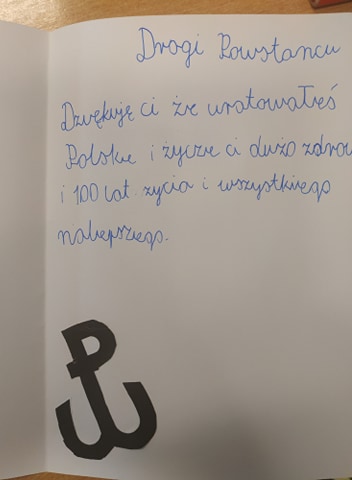 Drogi Powstańcu
Dziękuję ci że uratowałeś
Polskie i życze ci dużo zdrow
i 100 lat życia i wszystkiego
nalepszego.